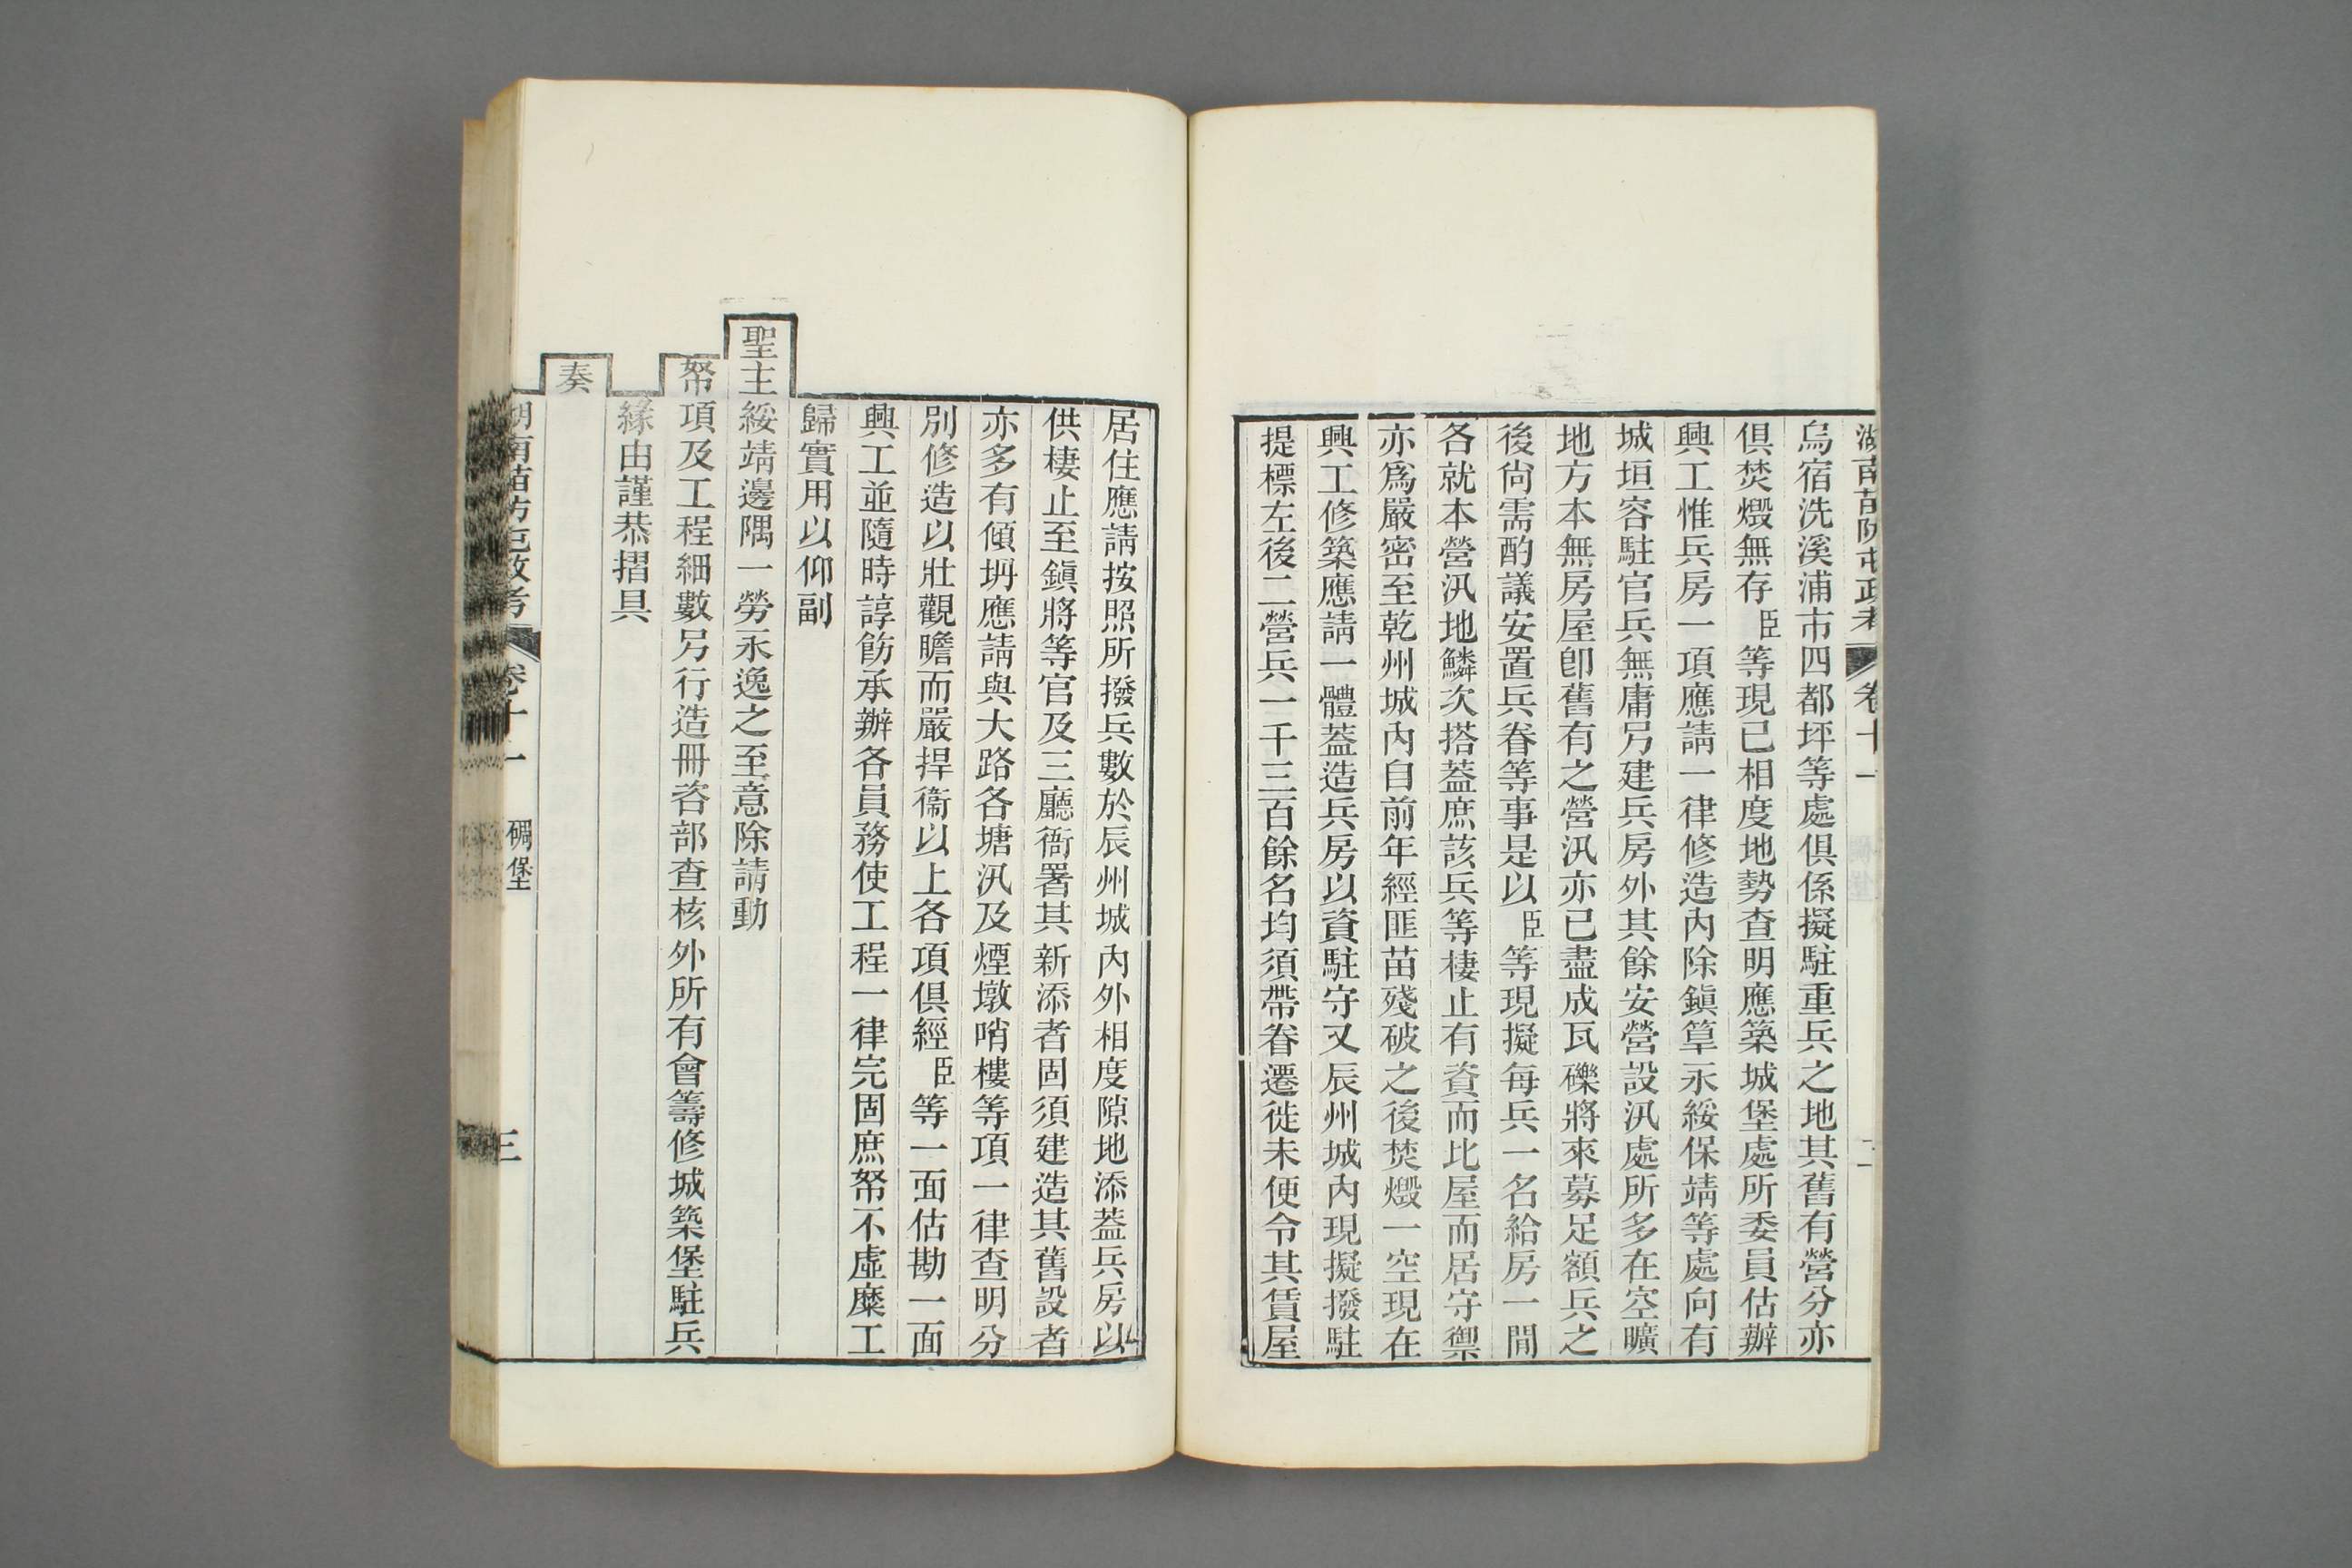 湖南苗防屯政考 卷十一
烏宿洗溪浦市四都坪等處俱係擬駐重兵之地其舊有營分亦
俱焚燬無存臣等現已相度地勢查明應築城堡處所委員估辦
興工惟兵房一項應請一律修造內除鎭筸永綏保靖等處向有
城垣容駐官兵無庸另建兵房外其餘安營設汛處所多在空曠
地方本無房屋卽舊有之營汛亦已盡成瓦礫將來募足額兵之
後尙需酌議安置兵眷等事是以臣等現擬每兵一名給房一間
各就本營汛地鱗次搭葢庶該兵等棲止有資而比屋而居守禦
亦爲嚴密至乾州城內自前年經匪苗殘破之後焚燬一空現在
興工修築應請一體葢造兵房以資駐守又辰州城內現擬撥駐
提標左後二營兵一千三百餘名均須帶眷遷徙未便令其賃屋
居住應請按照所撥兵數於辰州城內外相度隙地添葢兵房以
供棲止至鎭將等官及三廳衙署其新添者固須建造其舊設者
亦多有傾坍應請與大路各塘汛及煙墩哨樓等項一律查明分
別修造以壯觀瞻而嚴捍衞以上各項俱經臣等一面估勘一面
興工並隨時諄飭承辦各員務使工程一律完固庶帑不虛糜工
歸實用以仰副
聖主綏靖邊隅一勞永逸之至意除請動
帑項及工程細數另行造冊咨部查核外所有會籌修城築堡駐兵
緣由謹恭摺具
奏
湖南苗防屯政考 卷十一 碉堡 三